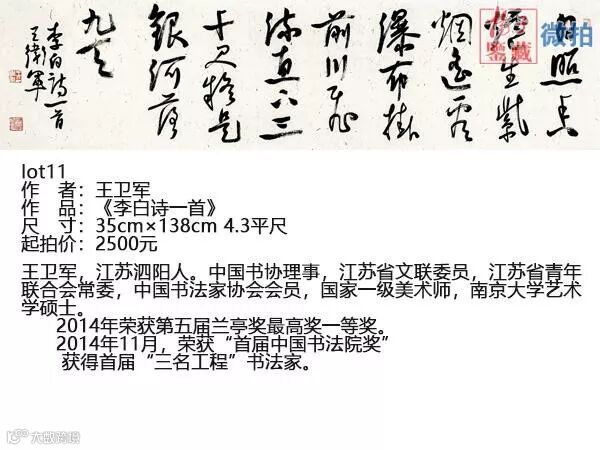 日照香
炉生紫
烟遥看
瀑布掛
前川飛
流直下三
千尺疑是
銀河落
九天
李白诗一首
王衛軍
鉴藏
微拍
lot11
作　者：王卫军
作　品：《李白诗一首》
尺　寸：35cm×138cm 4.3平尺
起拍价：2500元
王卫军，江苏泗阳人。中国书协理事，江苏省文联委员，江苏省青年
联合会常委，中国书法家协会会员，国家一级美术师，南京大学艺术
学硕士。
2014年荣获第五届兰亭奖最高奖一等奖。
2014年11月，荣获“首届中国书法院奖”
获得首届“三名工程”书法家。
大数跨境